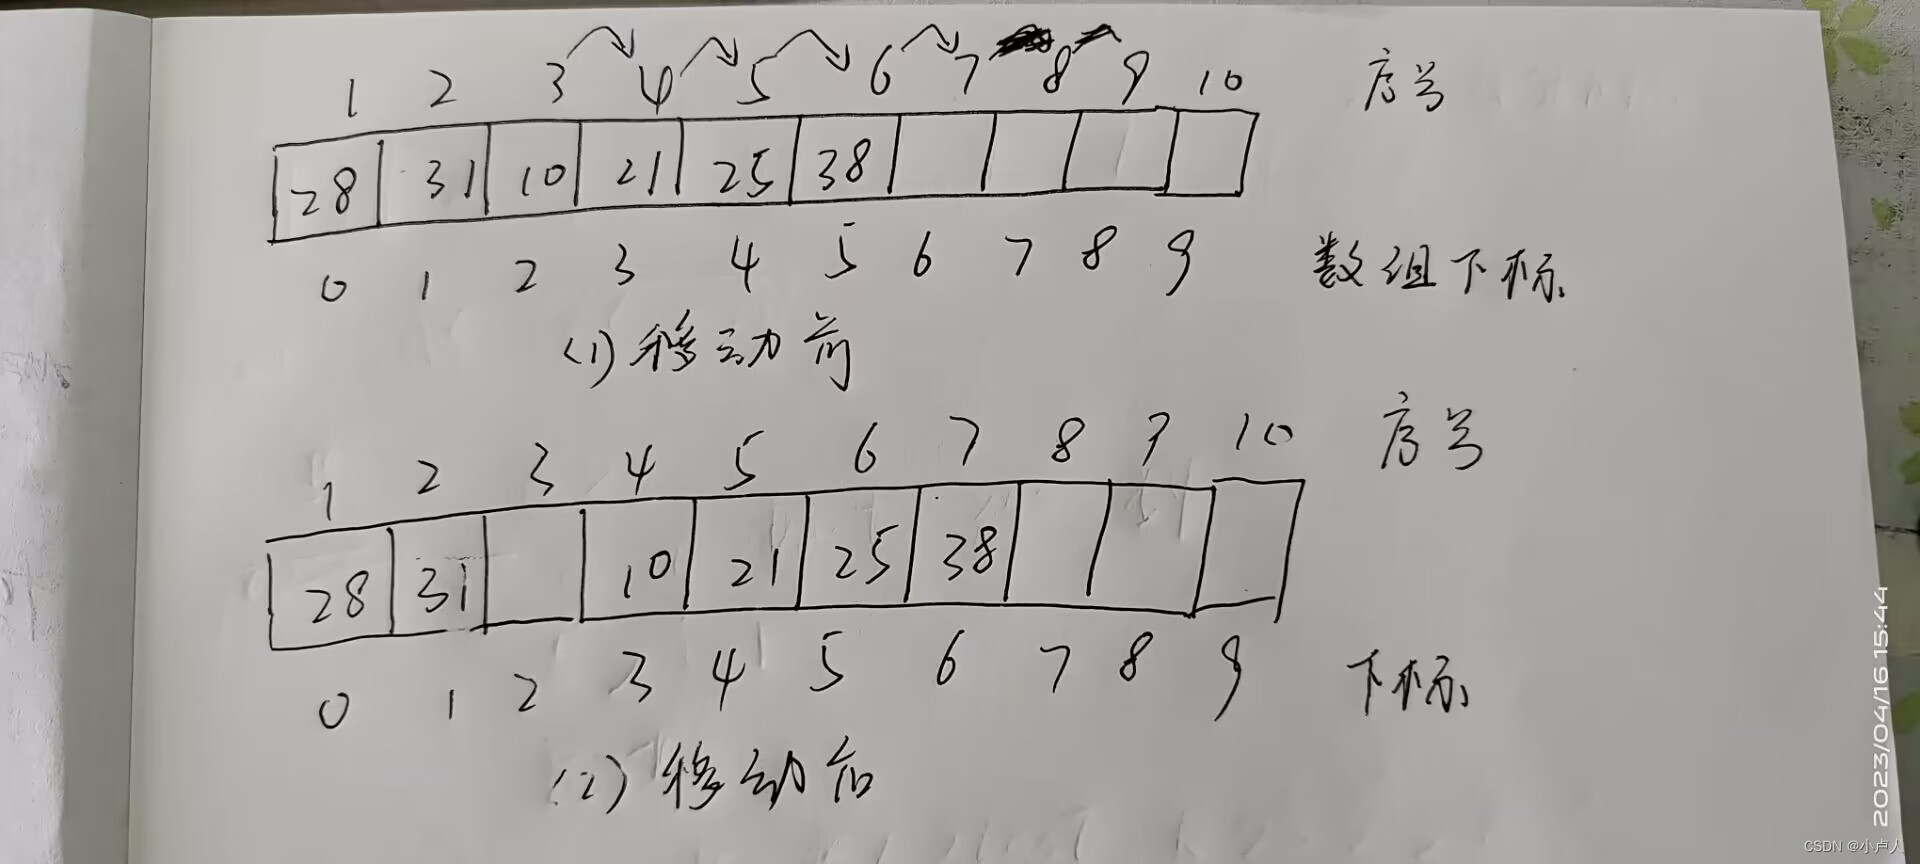 1 2 3 4 5 6 7 8 9 10 序号
28 31 10 21 25 38
0 1 2 3 4 5 6 7 8 9 数组下标
(1) 移动前
1 2 3 4 5 6 7 8 9 10 序号
28 31 10 21 25 38
0 1 2 3 4 5 6 7 8 9 下标
(2) 移动后
2023/04/16 15:44
CSDN @小卢人